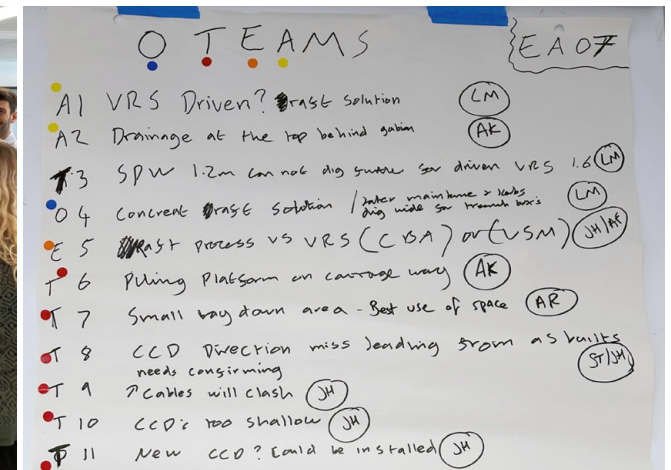 O T E A M S
EA07
A1 VRS Driven? solution LM
A2 Drainage at the top behind gabion AK
T 3 SPW 1.2m can not dig for driven VRS 1.6 LM
O 4 Concreat solution / later maintaine & kerbs LM
dig wide for trench box's
E 5 process vs VRS (CBA) or (VSM) JH/AF
T 6 Piling Platform on carrage way AK
T 7 Small lay down area - Best use of space AR
T 8 CCD Direction miss leading from as builts
needs confirming ST/JH
T 9 ↗ Cables will clash JH
T 10 CCD's too shallow JH
T 11 New CCD? Could be installed JH